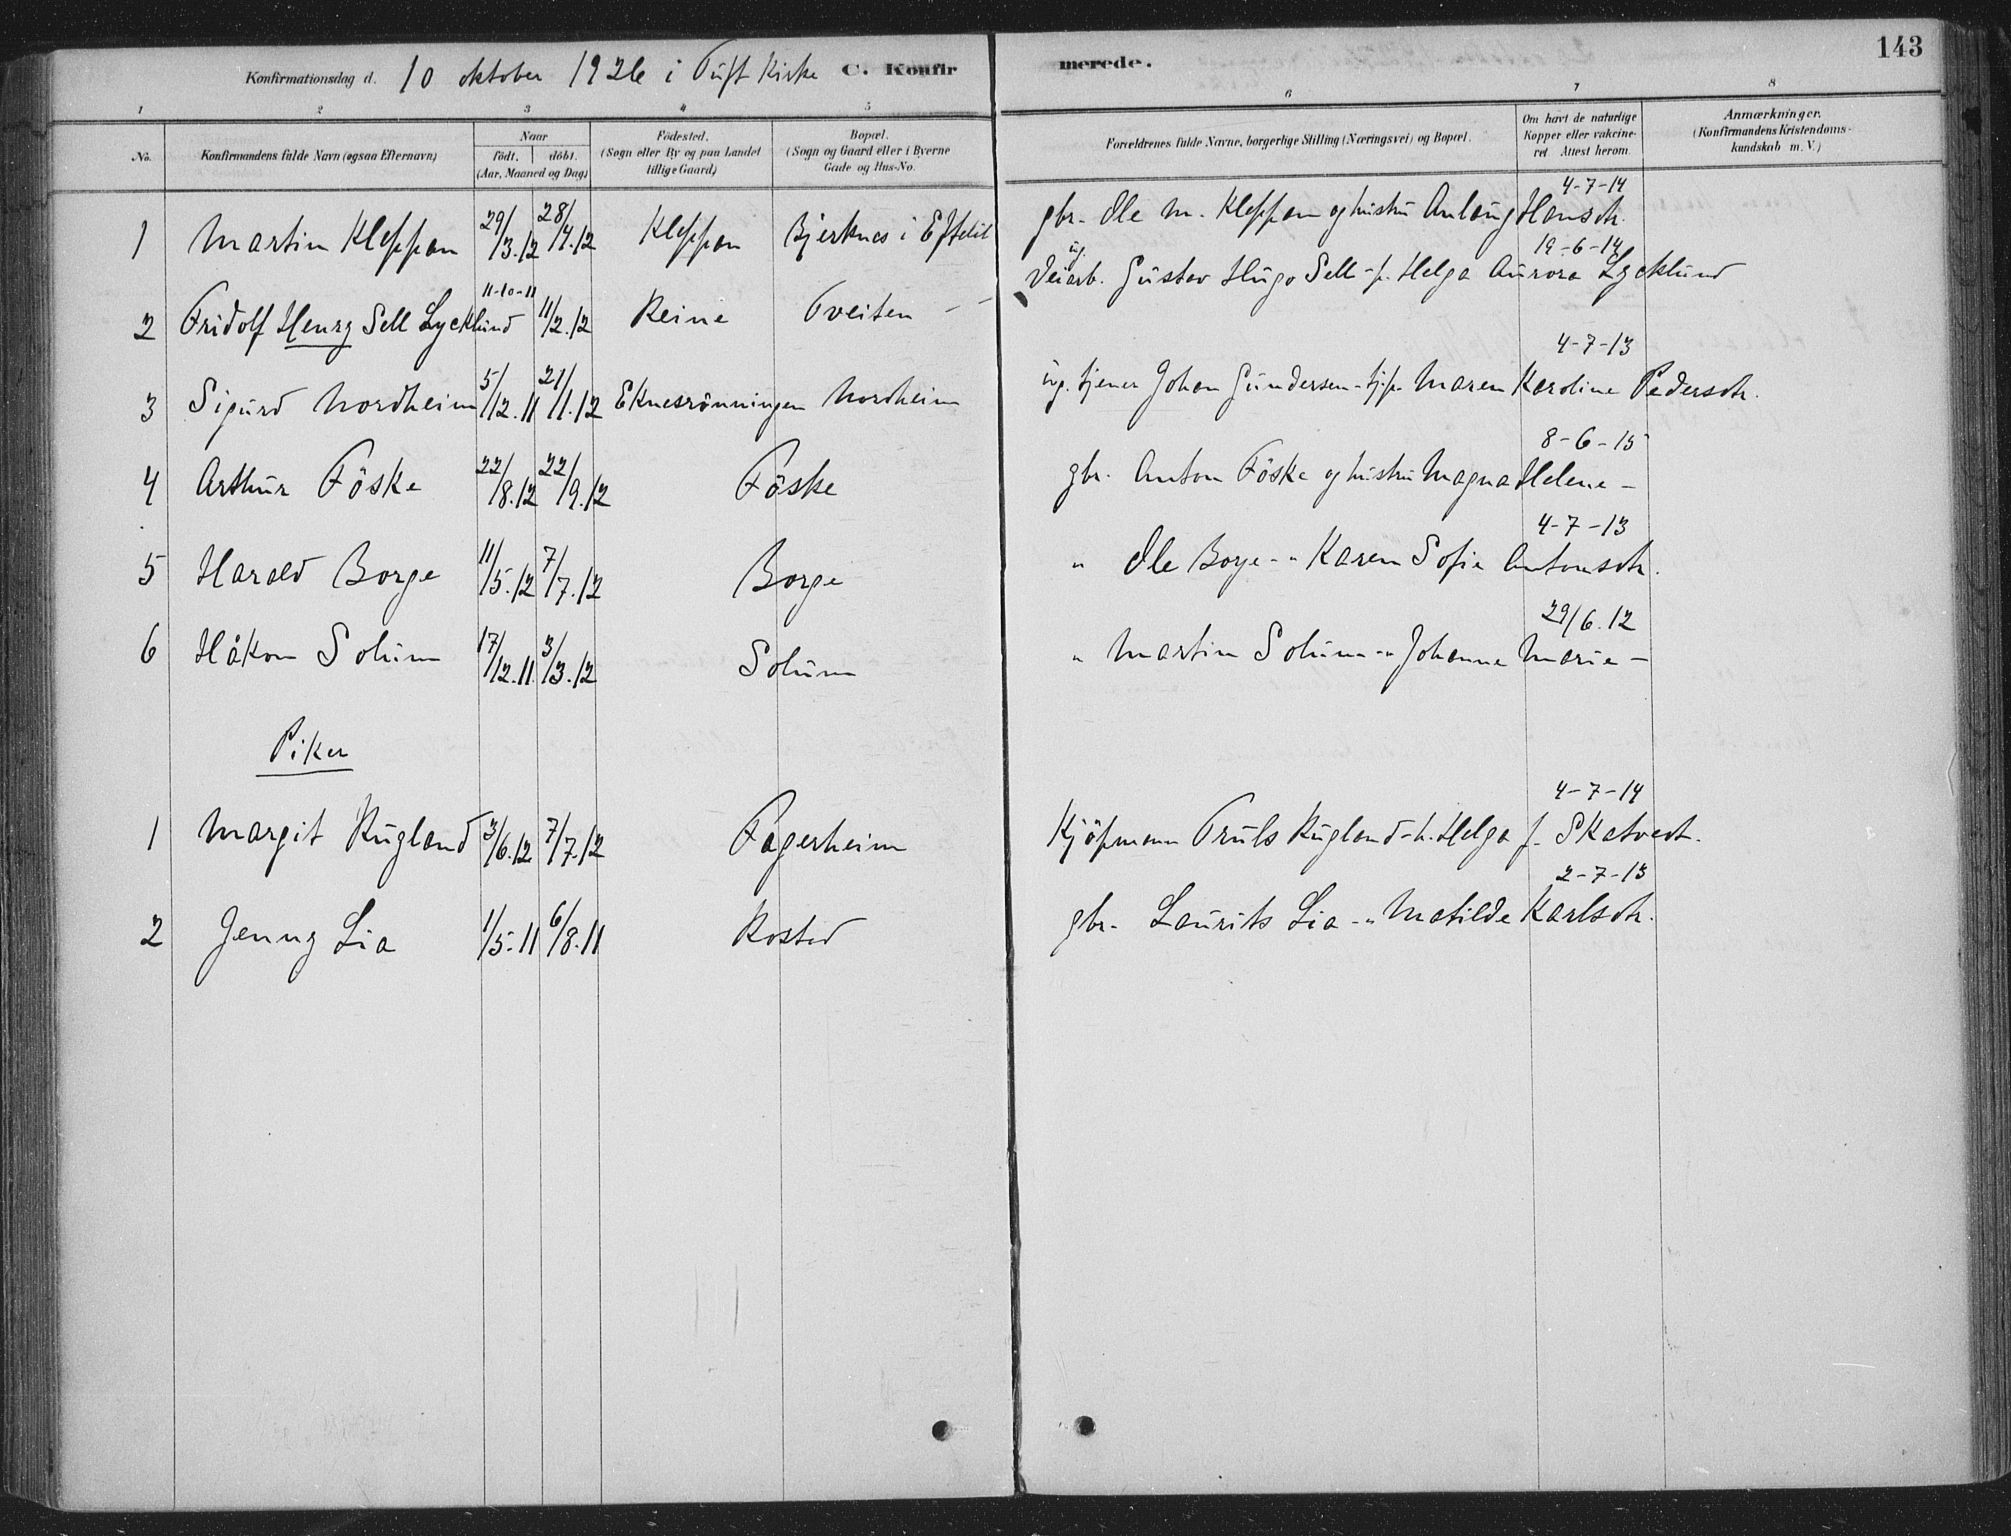 Konfirmationsdag d. 10 oktober 1926 i Tuft Kirke C. Konfirmerede. 143
1 2 3 4 5 6 7 8
No. Konfirmandens fulde Navn (ogsaa Efternavn) Naar födt. döbt. (Aar, Maaned og Dag) Födested. (Sogn eller By og paa Landet tillige Gaard) Bopæl. (Sogn og Gaard eller i Byerne Gade og Hus-No. Forældrenes fulde Navne, borgerlige Stilling (Næringsvei) og Bopæl. Om havt de naturlige Kopper eller vakcineret Attest herom. Anmærkninger. (Konfirmandens Kristendomskundskab m. V.)
1 Martin Kleppan 29/3.12 28/4.12 Kleppan Bjerknes i Eftelöt gbr. Ole M. Kleppan og hustru Anlaug Hansdtr. 4-7-14
2 Fridolf Henry Sell Lycklund 11-10-11 11/2.12 Reine Tveiten ug. Veiarb. Gustav Hugo Sell - p. Helga Aurora Lycklund 19-6-14
3 Sigurd Nordheim 5/12.11 21/1.12 Eknesrönningen Nordheim ug. tjener Johan Gundersen - tj.p. Maren Karoline Pedersdtr. 4-7-13
4 ArthurFöske 22/8.12 22/9.12 Föske gbr. Anton Föske og hustru Magna Helene - 8-6-15
5 Harald Borge 11/5.12 7/7.12 Borge " Ole Borge - " Karen Sofie Antonsdtr. 4-7-13
6 Håkon Solum 17/12.11. 3/3.12 Solum " Martin Solum - " Johanne Marie - 29/6.12
Piker
1 Margit Rugland 3/6.12 7/7.12 Fagerheim Kjöpmann Truls Rugland - h. Helga f. Skatvedt. 4-7-14
2 Jenny Lia 1/5.11 6/8.11 Rosted gbr. Laurits Lia - " Matilde Karlsdtr. 2-7-13